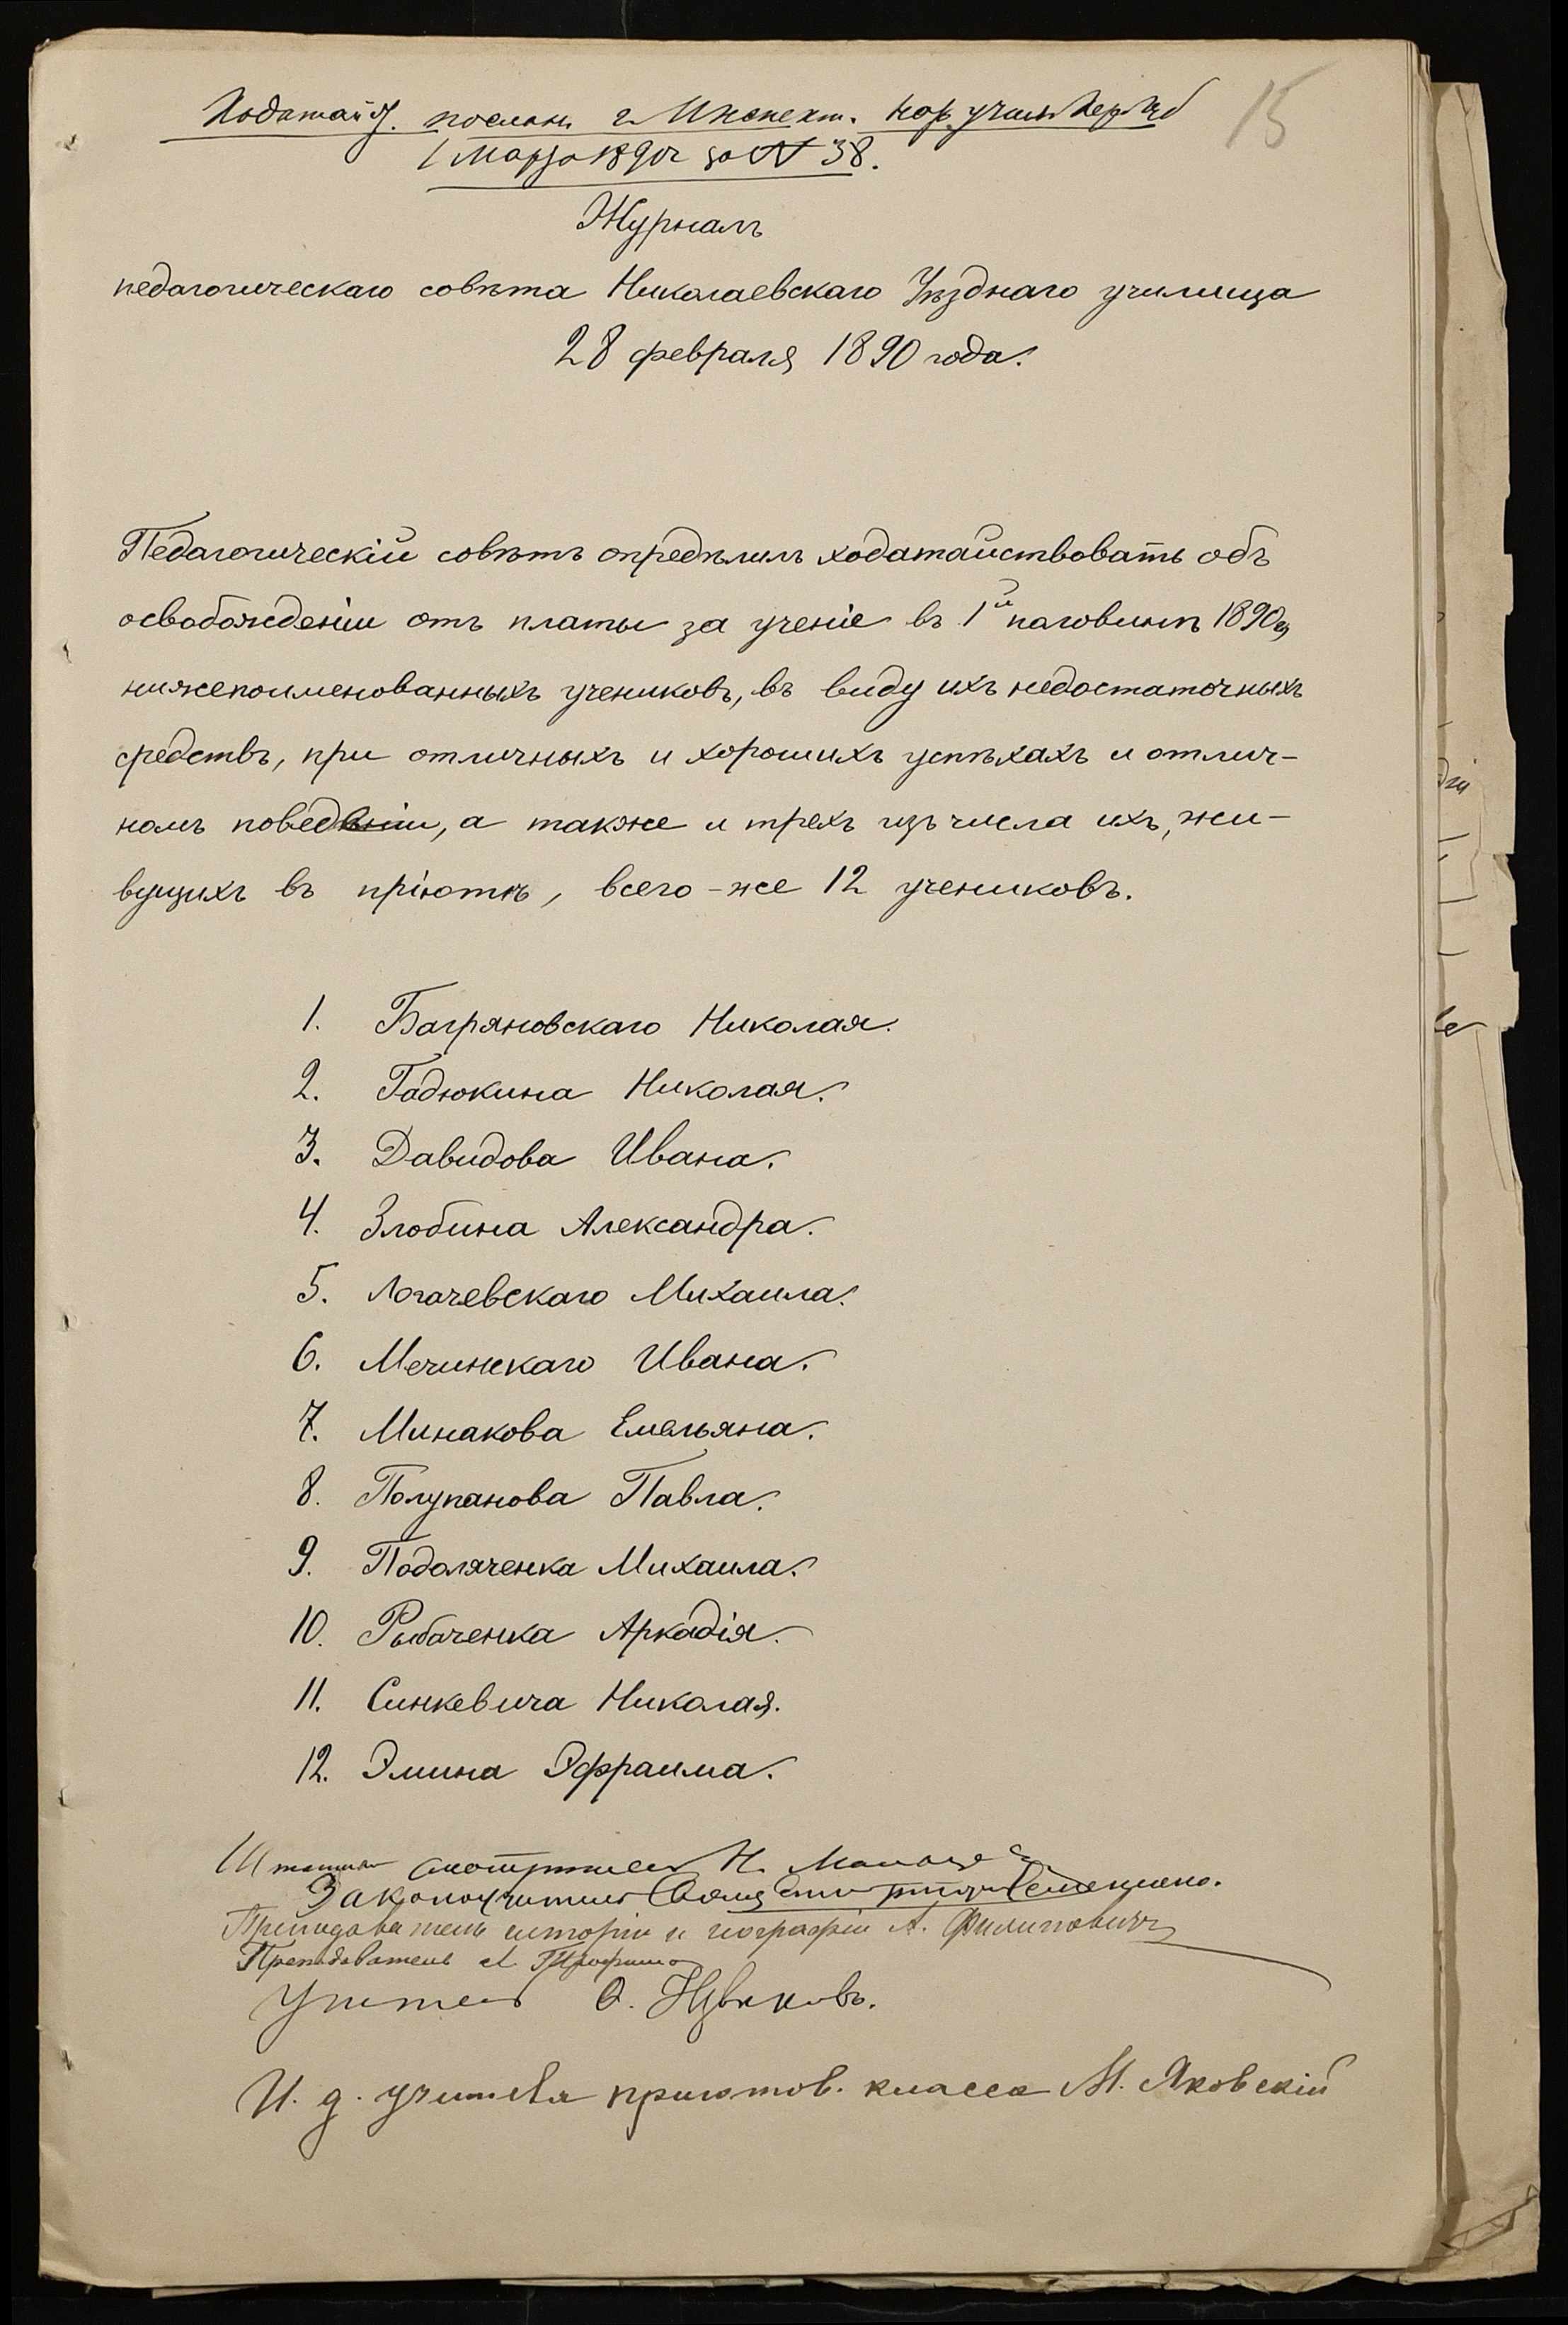 15
Ходатайст. послан. г. Инспект. нар. училищ Хер. губ.
1 Марта 1890 г. за № 38.
Журналъ
педагогическаго совѣта Николаевскаго Уѣзднаго училища
28 февраля 1890 года.
Педагогическій совѣтъ опредѣлилъ ходатайствовать объ
освобожденіи отъ платы за ученіе въ 1й половинѣ 1890 г.
нижепоименованныхъ учениковъ, въ виду ихъ недостаточныхъ
средствъ, при отличныхъ и хорошихъ успѣхахъ и отлич-
номъ поведеніи, а также и трехъ изъ числа ихъ, жи-
вущихъ въ пріютѣ, всего-же 12 учениковъ.
1. Багряновскаго Николая.
2. Гадюкина Николая.
3. Давидова Ивана.
4. Злобина Александра.
5. Логачевскаго Михаила.
6. Мечинскаго Ивана.
7. Минакова Емельяна.
8. Полупанова Павла.
9. Подоляченка Михаила.
10. Рыбаченка Аркадія.
11. Синкевича Николая.
12. Элина Эфраима.
Штатный смотритель Н.
Законоучитель Свящ.
Преподаватель исторіи и географіи А. Филиповичъ
Преподаватель
Учитель
И. д. учителя приготов. класса М. Яковскій